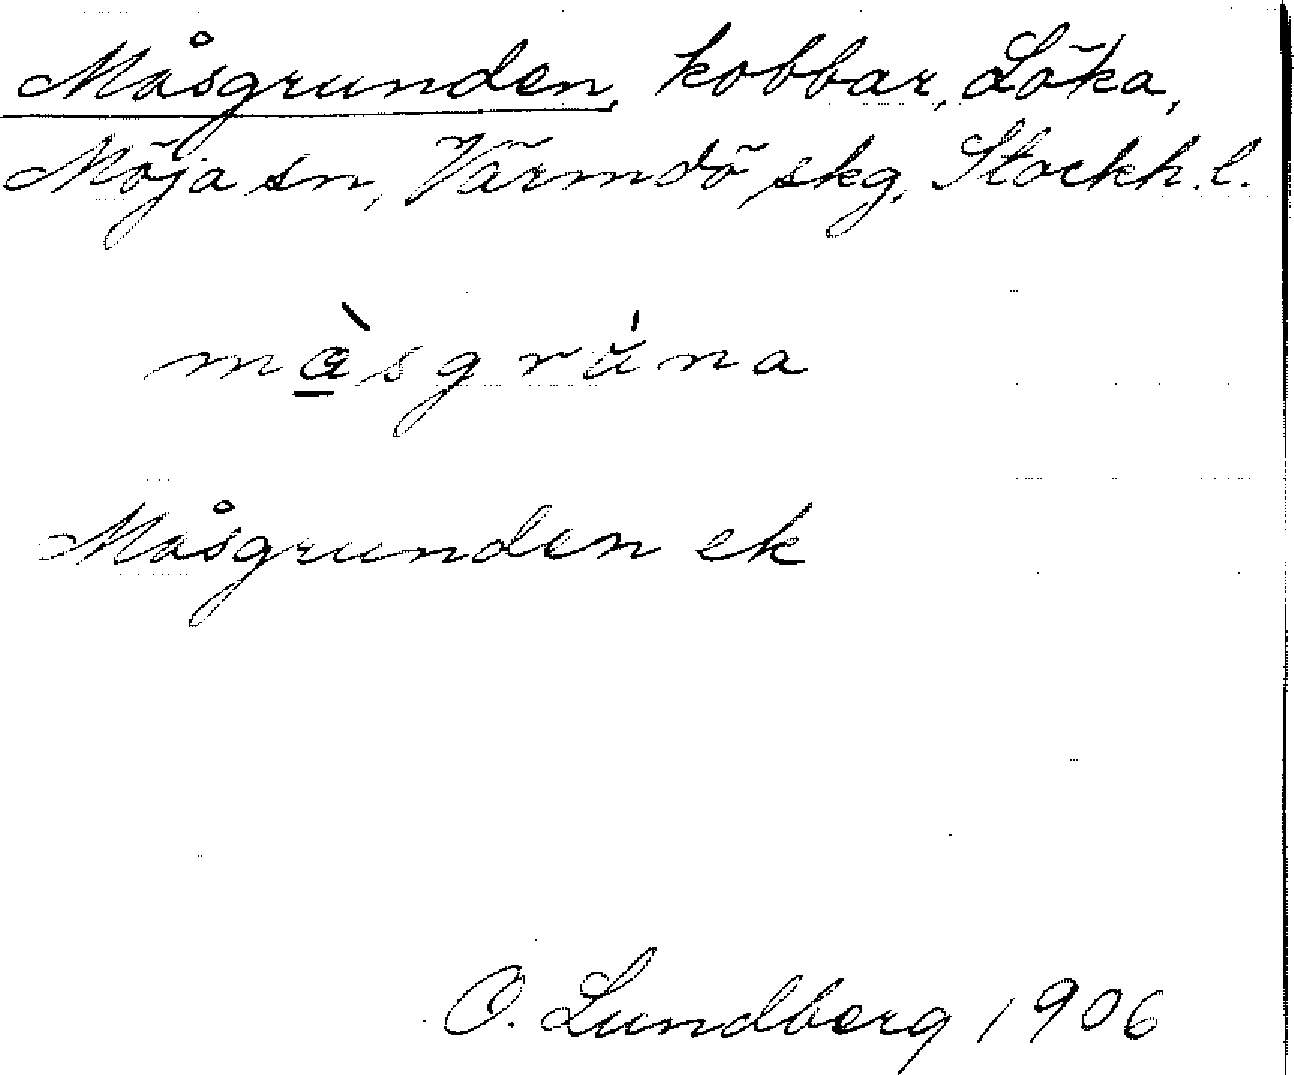 Måsgrunden, kobbar, Löka,
Möja sn, Värmdö skg, Stockh. l.
màsgrúna
Måsgrunden ek
O. Lundberg 1906